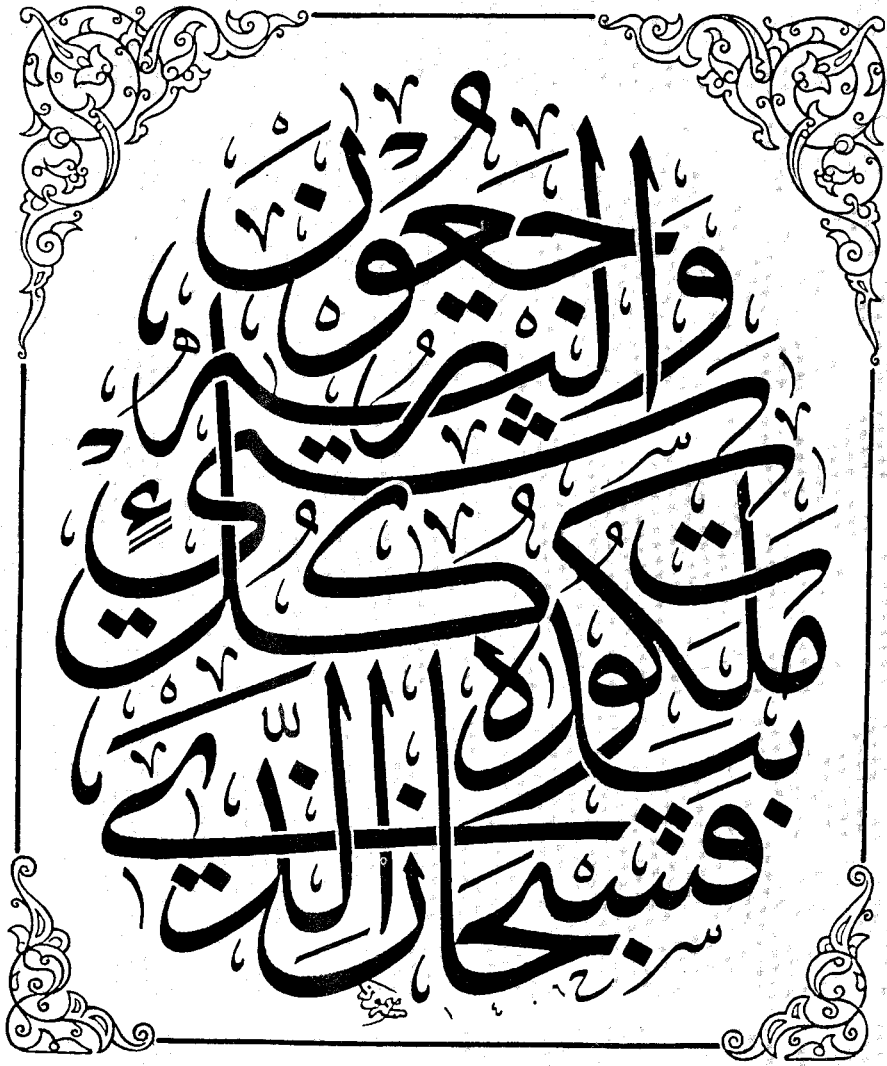 فَسُبْحَانَ الَّذِي
بِيَدِهِ مَلَكُوتُ
كُلِّ شَيْءٍ
وَإِلَيْهِ تُرْجَعُونَ
١٤٠٦